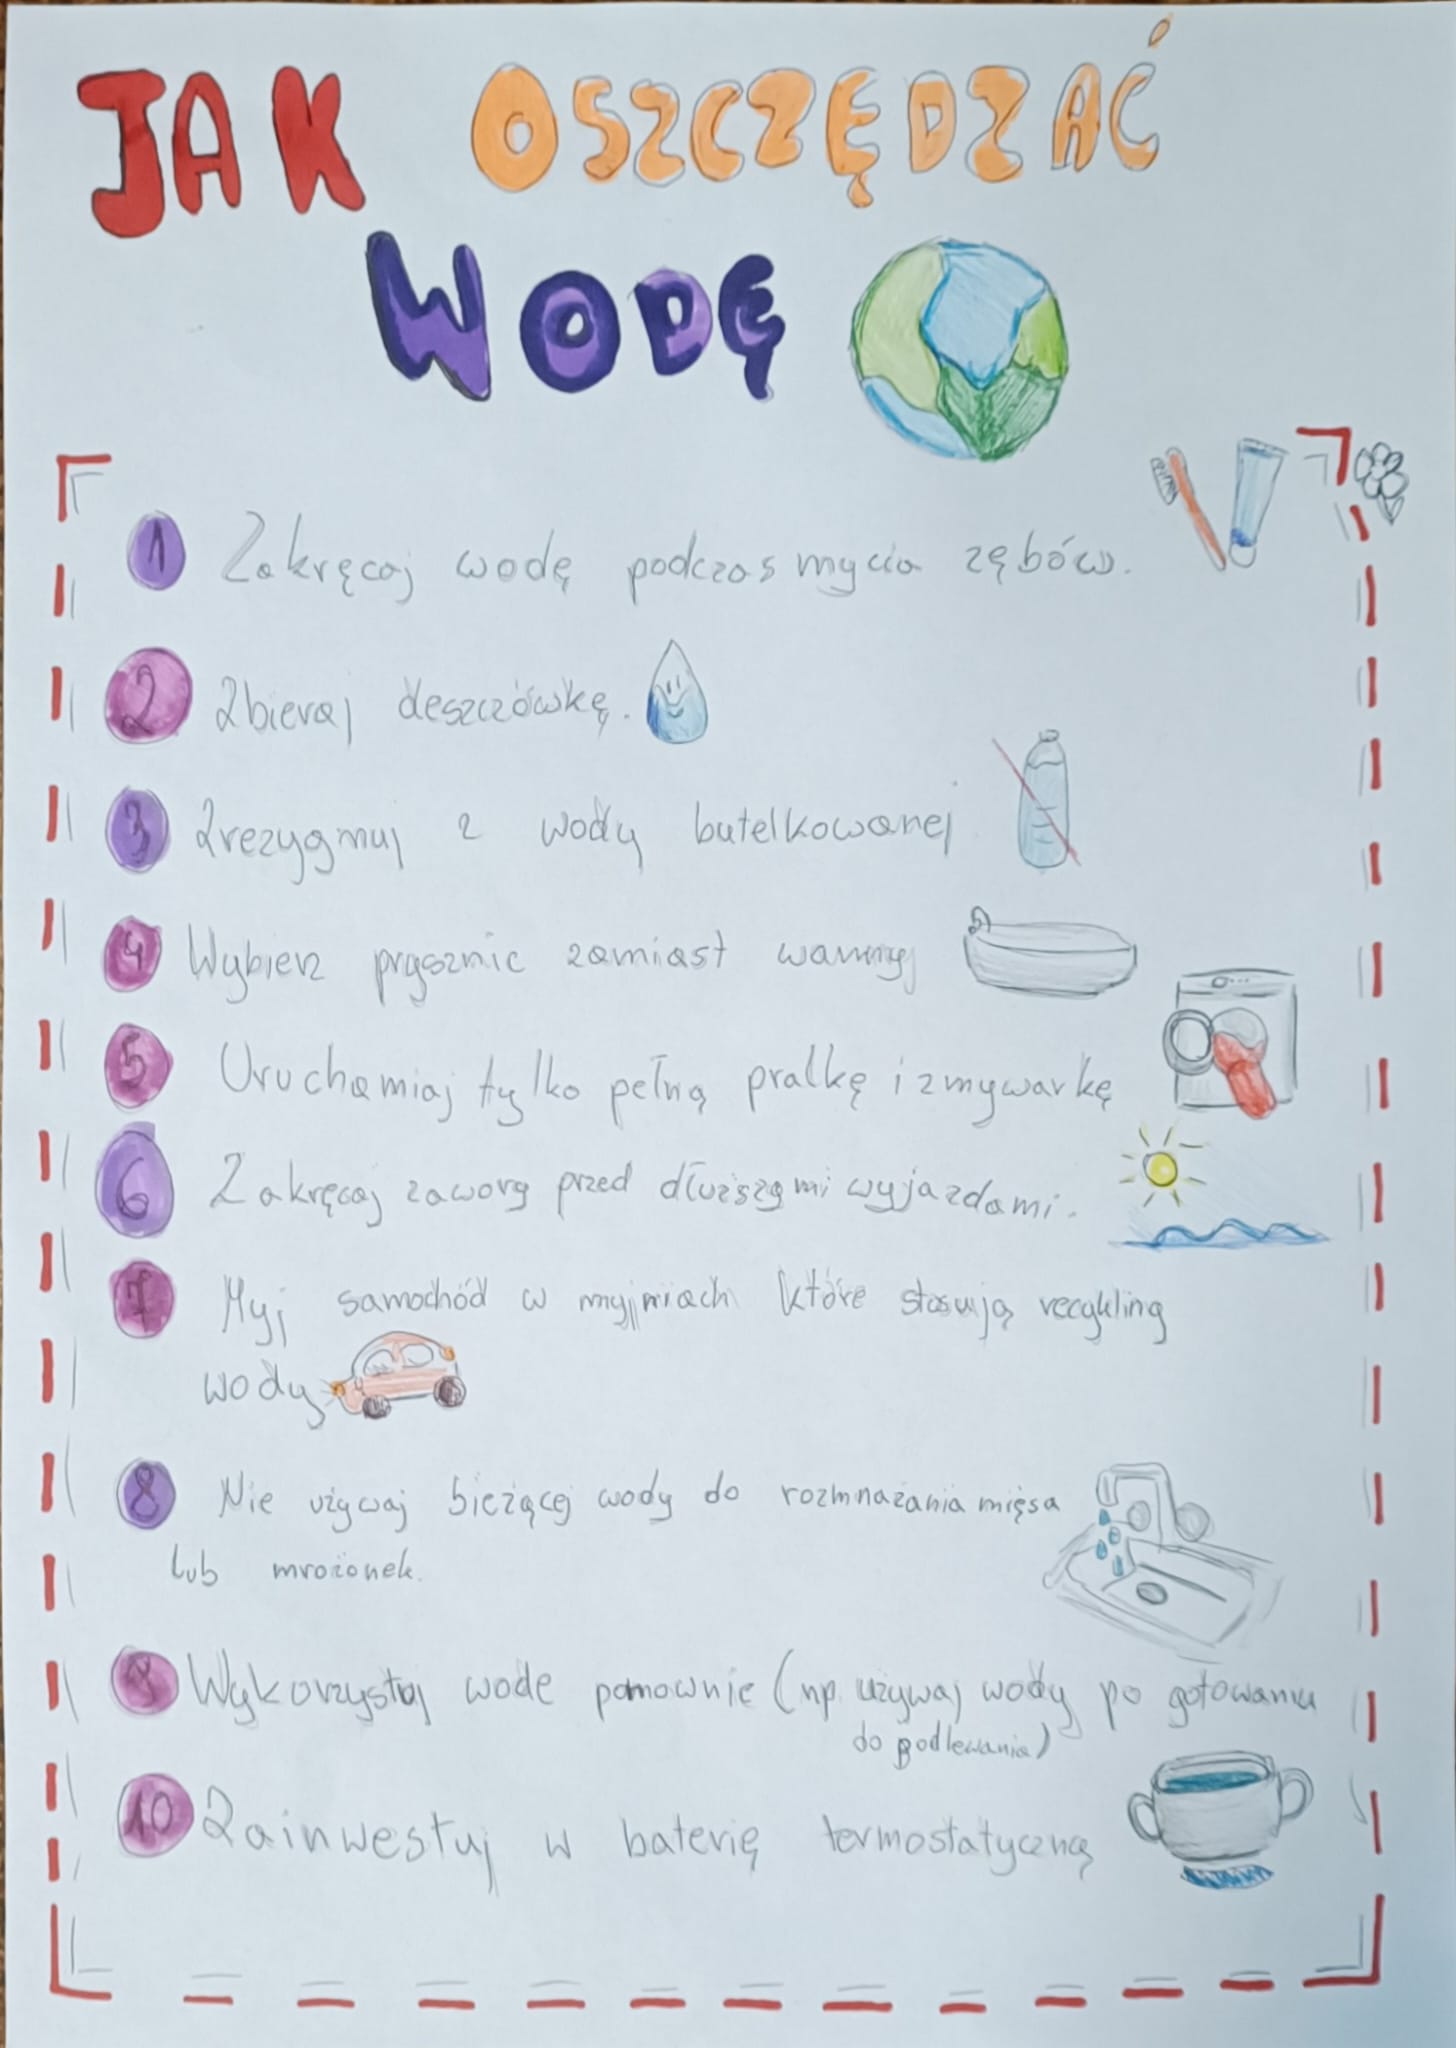 JAK OSZCZĘDZAĆ
WODĘ
1 Zakręcaj wodę podczas mycia zębów.
2 Zbieraj deszczówkę.
3 Zrezygnuj z wody butelkowanej
4 Wybierz prysznic zamiast wanny
5 Uruchamiaj tylko pełną pralkę i zmywarkę
6 Zakręcaj zawory przed dłuższymi wyjazdami.
7 Myj samochód w myjniach które stosują recykling
wody
8 Nie używaj bieżącej wody do rozmnażania mięsa
lub mrożonek.
9 Wykorzystaj wode ponownie (np. używaj wody po gotowaniu
do podlewania)
10 Zainwestuj w baterię termostatyczną